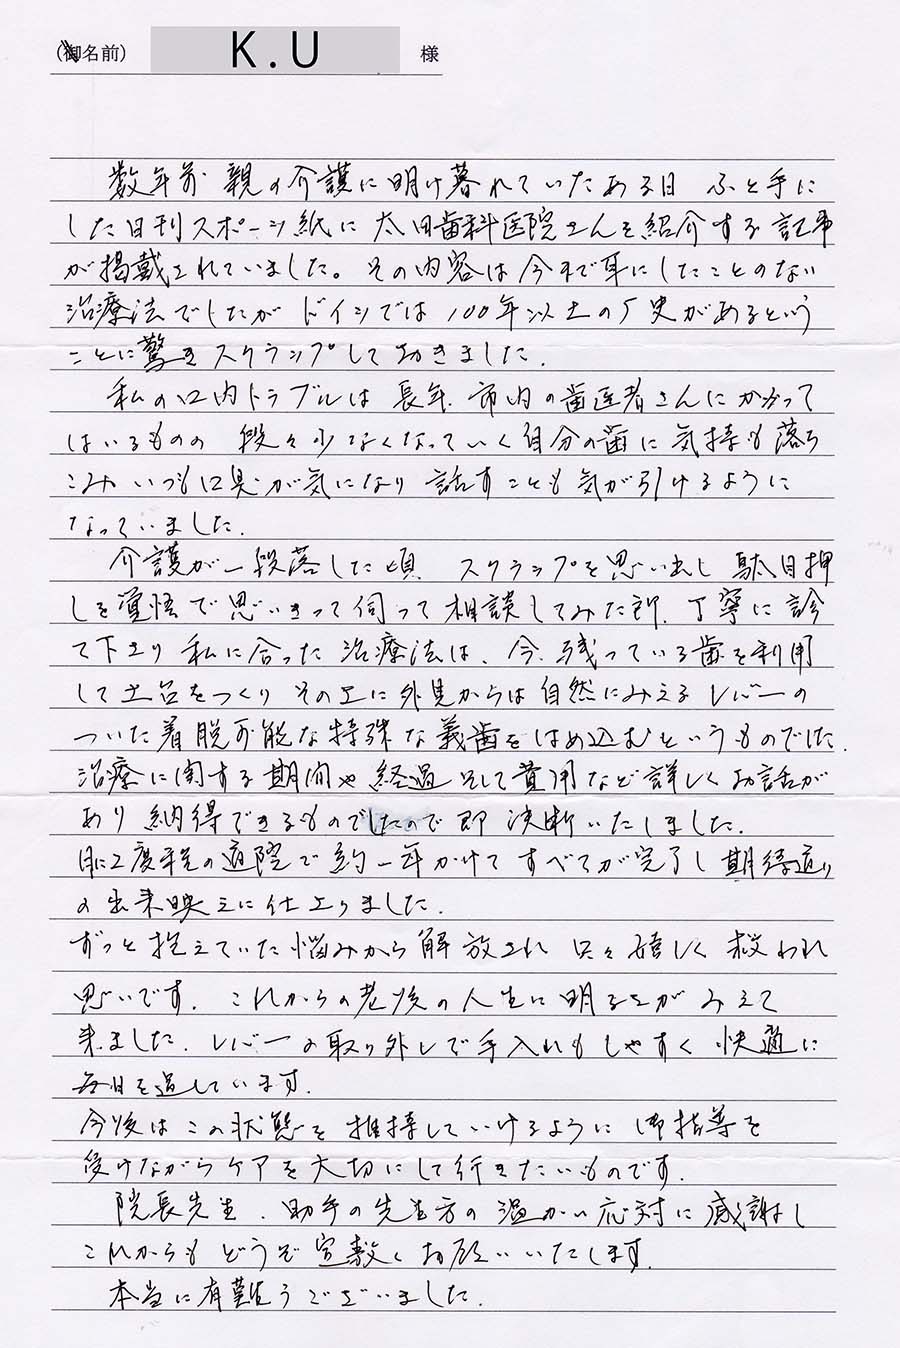 (御名前) K.U 様
数年前 親の介護に明け暮れていたある日 ふと手に
した日刊スポーツ紙に 太田歯科医院さんを紹介する記事
が掲載されていました。その内容は今まで耳にしたことのない
治療法でしたが ドイツでは 100年以上の歴史があるという
ことに驚き スクラップしておきました.
私の口内トラブルは 長年. 市内の歯医者さんにかかって
はいるものの 段々少なくなっていく自分の歯に 気持も落ち
こみ いつも口臭が気になり 話すことも気が引けるように
なっていました.
介護が一段落した頃 スクラップを思い出し 駄目押
しを覚悟で思いきって伺って相談してみた所. 丁寧に診
て下さり 私に合った治療法は、今、残っている歯を利用
して土台をつくり その上に外見からは自然にみえるレバーの
ついた着脱可能な特殊な義歯をはめ込むというものでした.
治療に関する期間や経過 そして費用など詳しくお話が
あり 納得できるものでしたので 即 決断いたしました.
月に2度程の通院で 約一年かけて すべてが完了し 期待通り
の出来映えに仕上りました.
ずっと抱えていた悩みから解放され 只々嬉しく 救われ
思いです. これからの老後の人生に明るさがみえて
来ました. レバーの取り外しで手入れもしやすく 快適に
毎日を過しています.
今後はこの状態を維持していけるように 御指導を
受けながらケアを大切にして行きたいものです.
院長先生. 助手の先生方の温かい応対に感謝し
これからも どうぞ宜敷くお願いいたします.
本当に有難うございました.